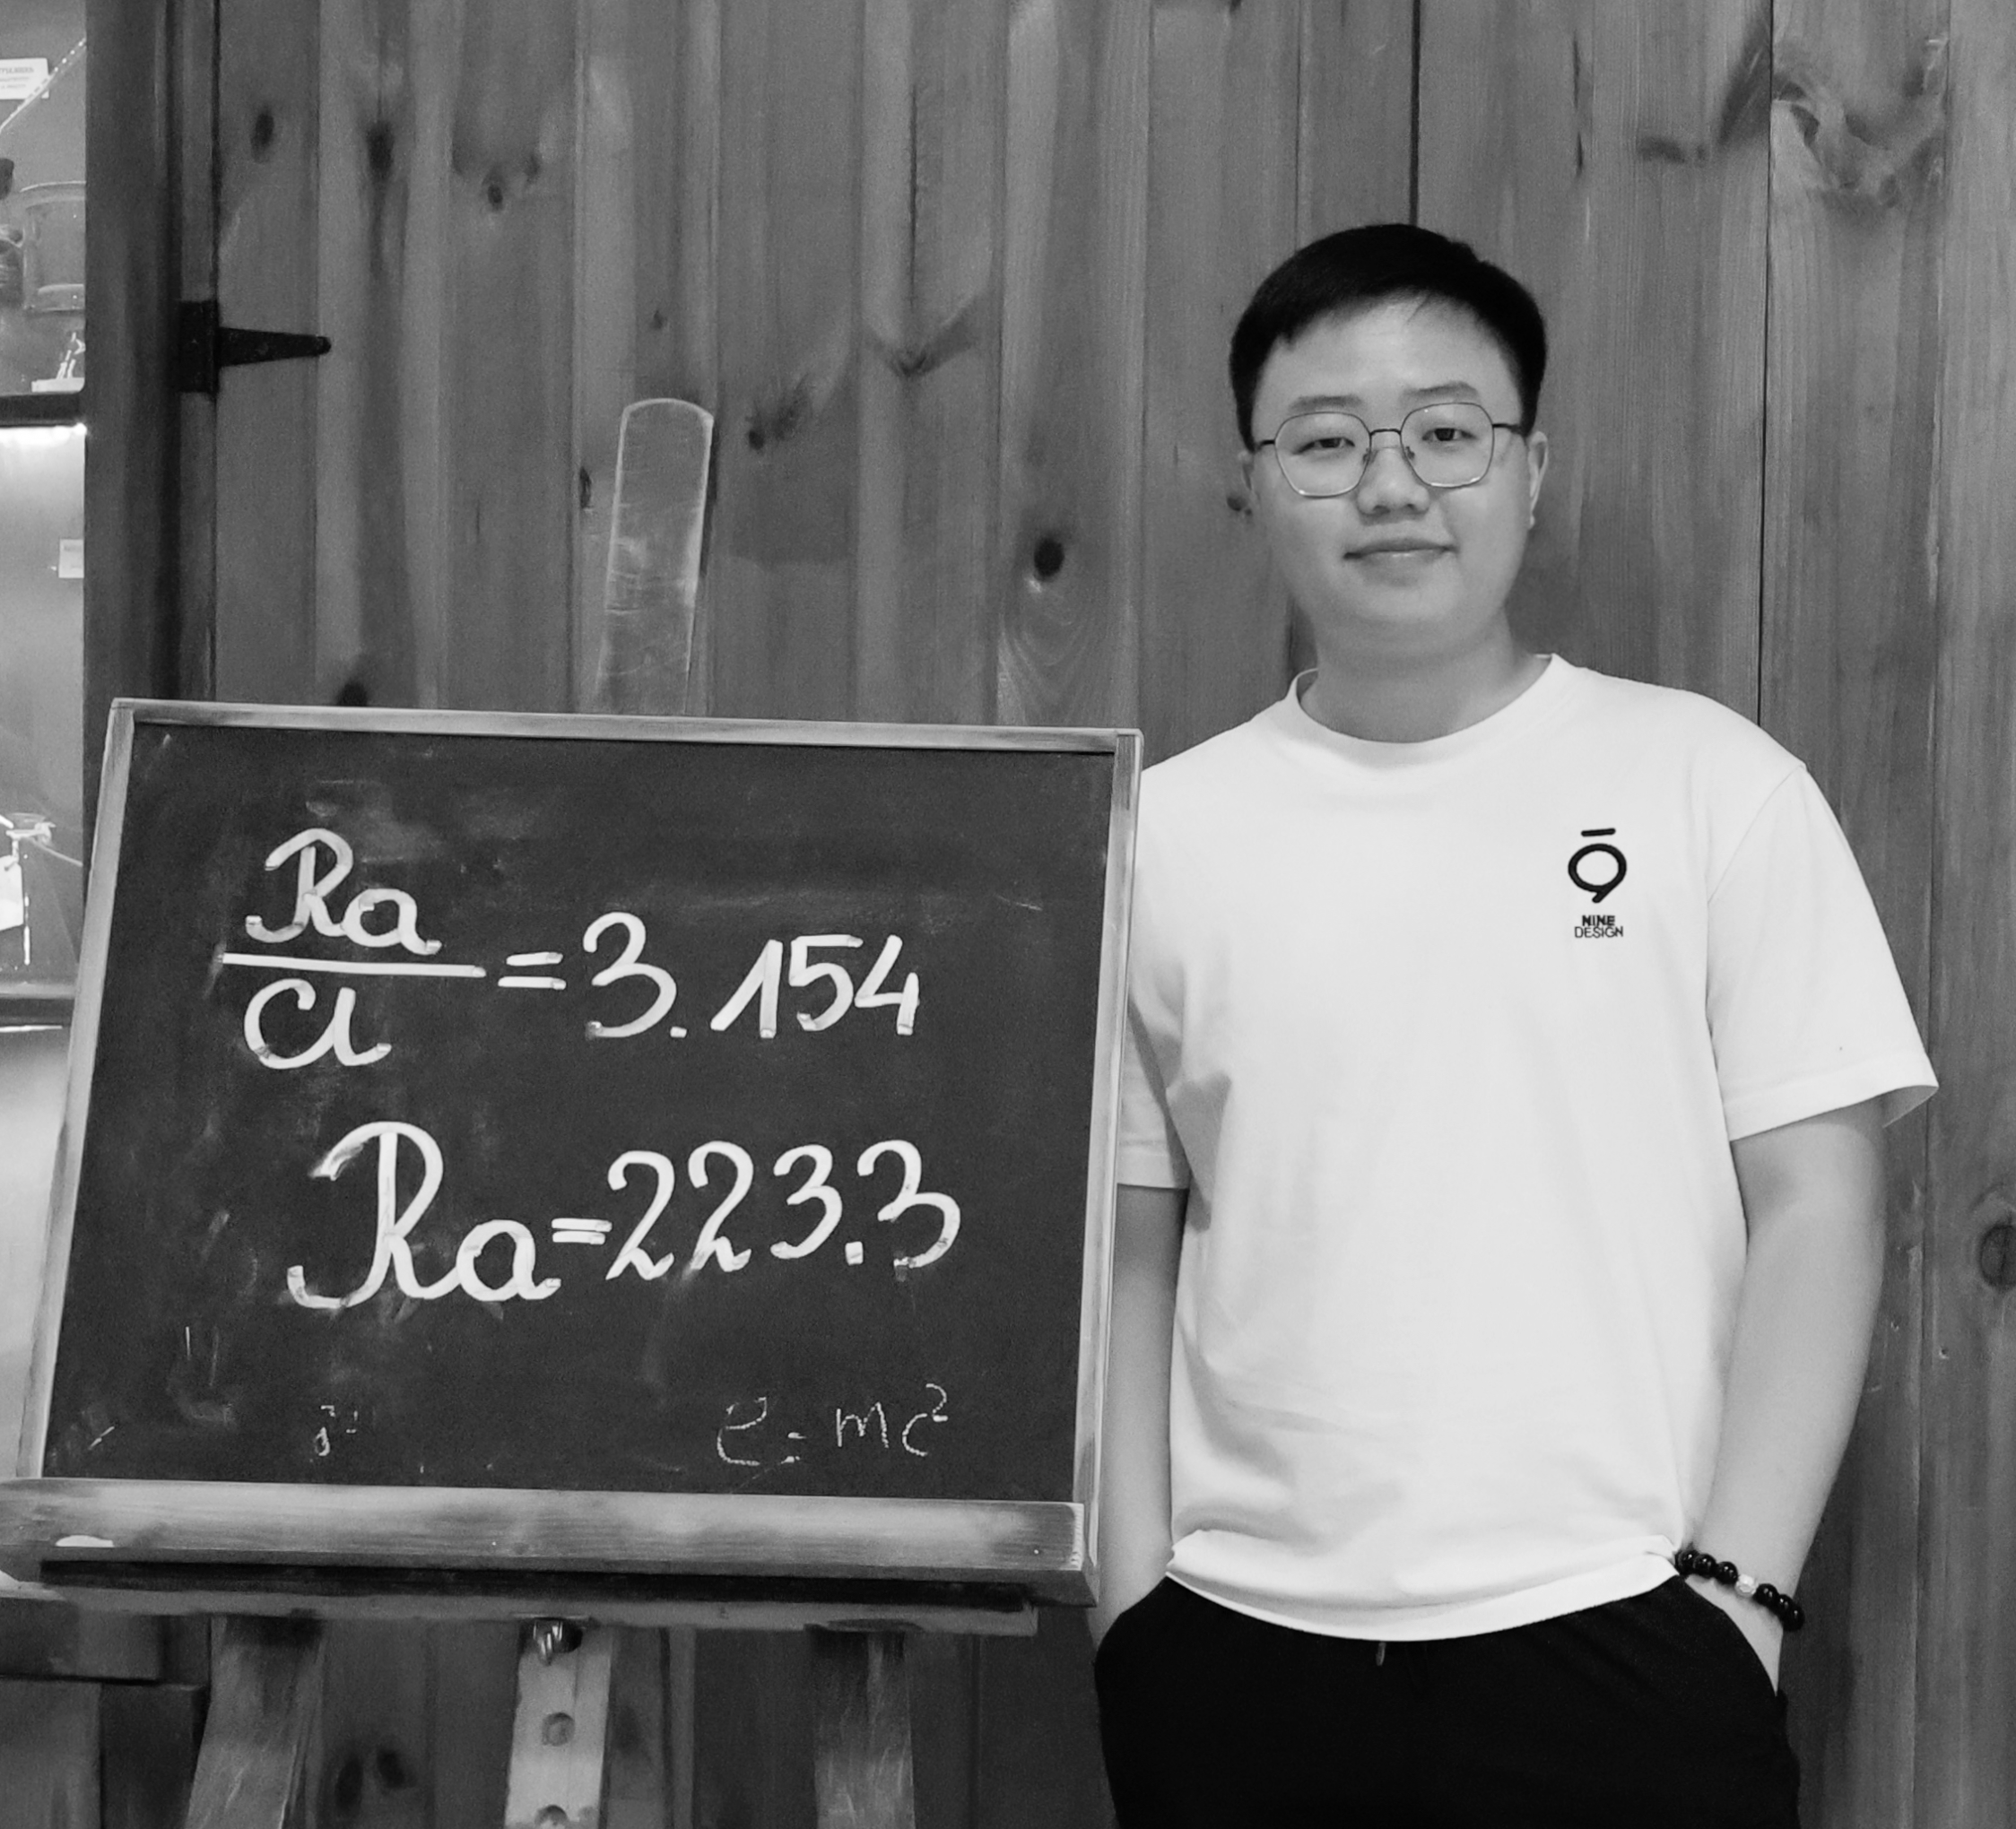 Ra
Cl
=3.154
Ra=223.3
e=mc²
NINE
DESIGN